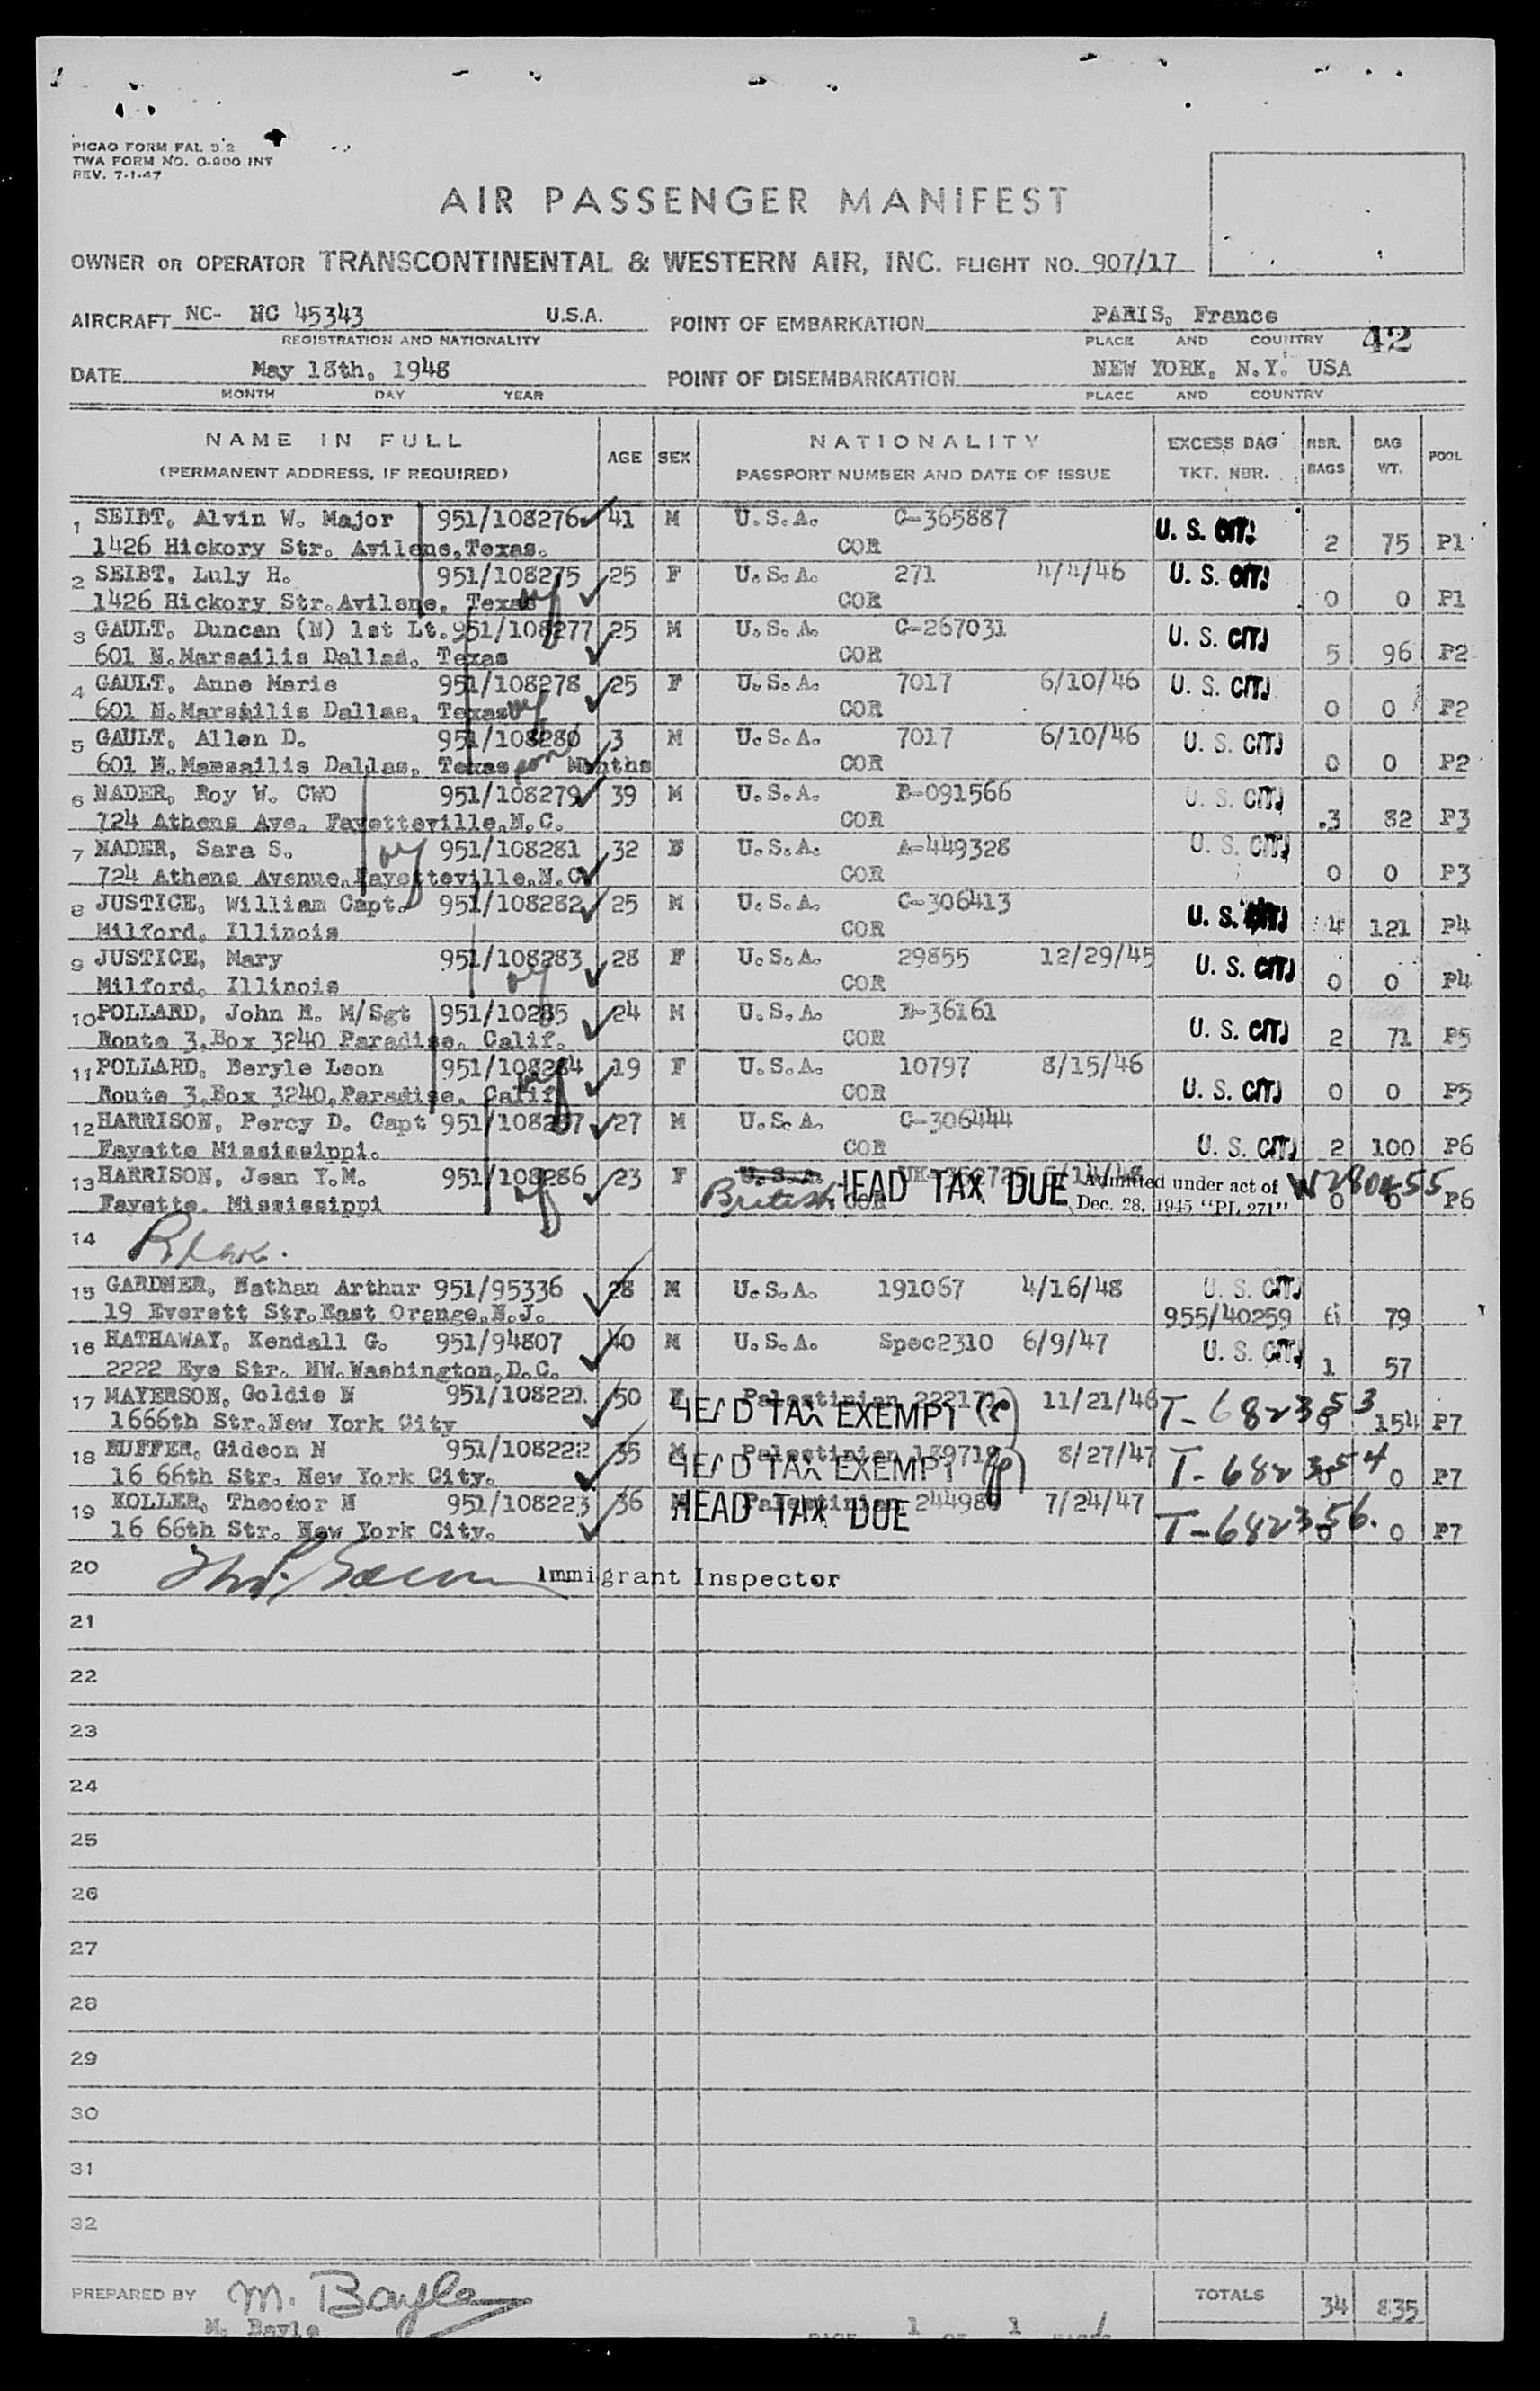 PICAO FORM FAL 3 2
TWA FORM NO. O-900 INT
REV. 7-1-47
AIR PASSENGER MANIFEST
OWNER OR OPERATOR TRANSCONTINENTAL & WESTERN AIR, INC. FLIGHT NO. 907/17
AIRCRAFT NC- NC 45343 U.S.A. POINT OF EMBARKATION PARIS, France
REGISTRATION AND NATIONALITY PLACE AND COUNTRY 42
DATE May 18th, 1948 POINT OF DISEMBARKATION NEW YORK, N.Y. USA
MONTH DAY YEAR PLACE AND COUNTRY
NAME IN FULL AGE SEX NATIONALITY EXCESS BAG NBR. BAG POOL
(PERMANENT ADDRESS, IF REQUIRED) PASSPORT NUMBER AND DATE OF ISSUE TKT. NBR. BAGS WT.
1 SEIBT, Alvin W. Major 951/108276 41 M U.S.A. C-365887 U. S. CIT.
1426 Hickory Str. Avilene, Texas. COR 2 75 P1
2 SEIBT, Luly H. 951/108275 25 F U.S.A. 271 4/4/46 U. S. CIT.
1426 Hickory Str. Avilene, Texas COR 0 0 P1
3 GAULT, Duncan (N) 1st Lt. 951/108277 25 M U.S.A. C-267031 U. S. CIT.
601 N.Marsailis Dallas, Texas COR 5 96 P2
4 GAULT, Anne Marie 951/108278 25 F U.S.A. 7017 6/10/46 U. S. CIT.
601 N.Marsailis Dallas, Texas COR 0 0 P2
5 GAULT, Allen D. 951/108280 3 M U.S.A. 7017 6/10/46 U. S. CIT.
601 N.Marsailis Dallas, Texas son Months COR 0 0 P2
6 NADER, Roy W. CWO 951/108279 39 M U.S.A. B-091566 U. S. CIT.
724 Athens Ave. Fayetteville, N.C. COR 3 82 P3
7 NADER, Sara S. 951/108281 32 U.S.A. A-449328 U. S. CIT.
724 Athens Avenue, Fayetteville, N.C. COR 0 0 P3
8 JUSTICE, William Capt. 951/108282 25 M U.S.A. C-306413 U. S. CIT.
Milford, Illinois COR 4 121 P4
9 JUSTICE, Mary 951/108283 28 F U.S.A. 29855 12/29/45 U. S. CIT.
Milford, Illinois COR 0 0 P4
10 POLLARD, John N. M/Sgt 951/10285 24 M U.S.A. B-36161 U. S. CIT.
Route 3, Box 3240 Paradise, Calif. COR 2 71 P5
11 POLLARD, Beryle Leon 951/108284 19 F U.S.A. 10797 8/15/46 U. S. CIT.
Route 3, Box 3240, Paradise, Calif COR 0 0 P5
12 HARRISON, Percy D. Capt 951/108287 27 M U.S.A. C-306444
Fayette Mississippi. COR U. S. CIT. 2 100 P6
13 HARRISON, Jean Y.M. 951/108286 23 F U.S.A. HEAD TAX DUE Admitted under act of
Fayette, Mississippi British COR Dec. 28, 1945 "PL 271" 0 0 P6
14
15 GARDNER, Nathan Arthur 951/95336 28 M U.S.A. 191067 4/16/48 U. S. CIT.
19 Everett Str. East Orange, N.J. 955/40259 6 79
16 HATHAWAY, Kendall G. 951/94807 40 M U.S.A. Spec2310 6/9/47 U. S. CIT.
2222 Eye Str. NW. Washington, D.C. 1 57
17 MAYERSON, Goldie N 951/108221 50 Palestinian 11/21/46 T-682353
1666th Str. New York City HEAD TAX EXEMPT 154 P7
18 RUFFER, Gideon N 951/108222 35 M Palestinian 8/27/47 T-682354
16 66th Str. New York City. HEAD TAX EXEMPT 0 0 P7
19 KOLLER, Theodor N 951/108223 36 M Palestinian 7/24/47 T-682356.
16 66th Str. New York City. HEAD TAX DUE 0 0 P7
20 Immigrant Inspector
21
22
23
24
25
26
27
28
29
30
31
32
PREPARED BY M. Bayle TOTALS 34 835
M. Bayle 1 1